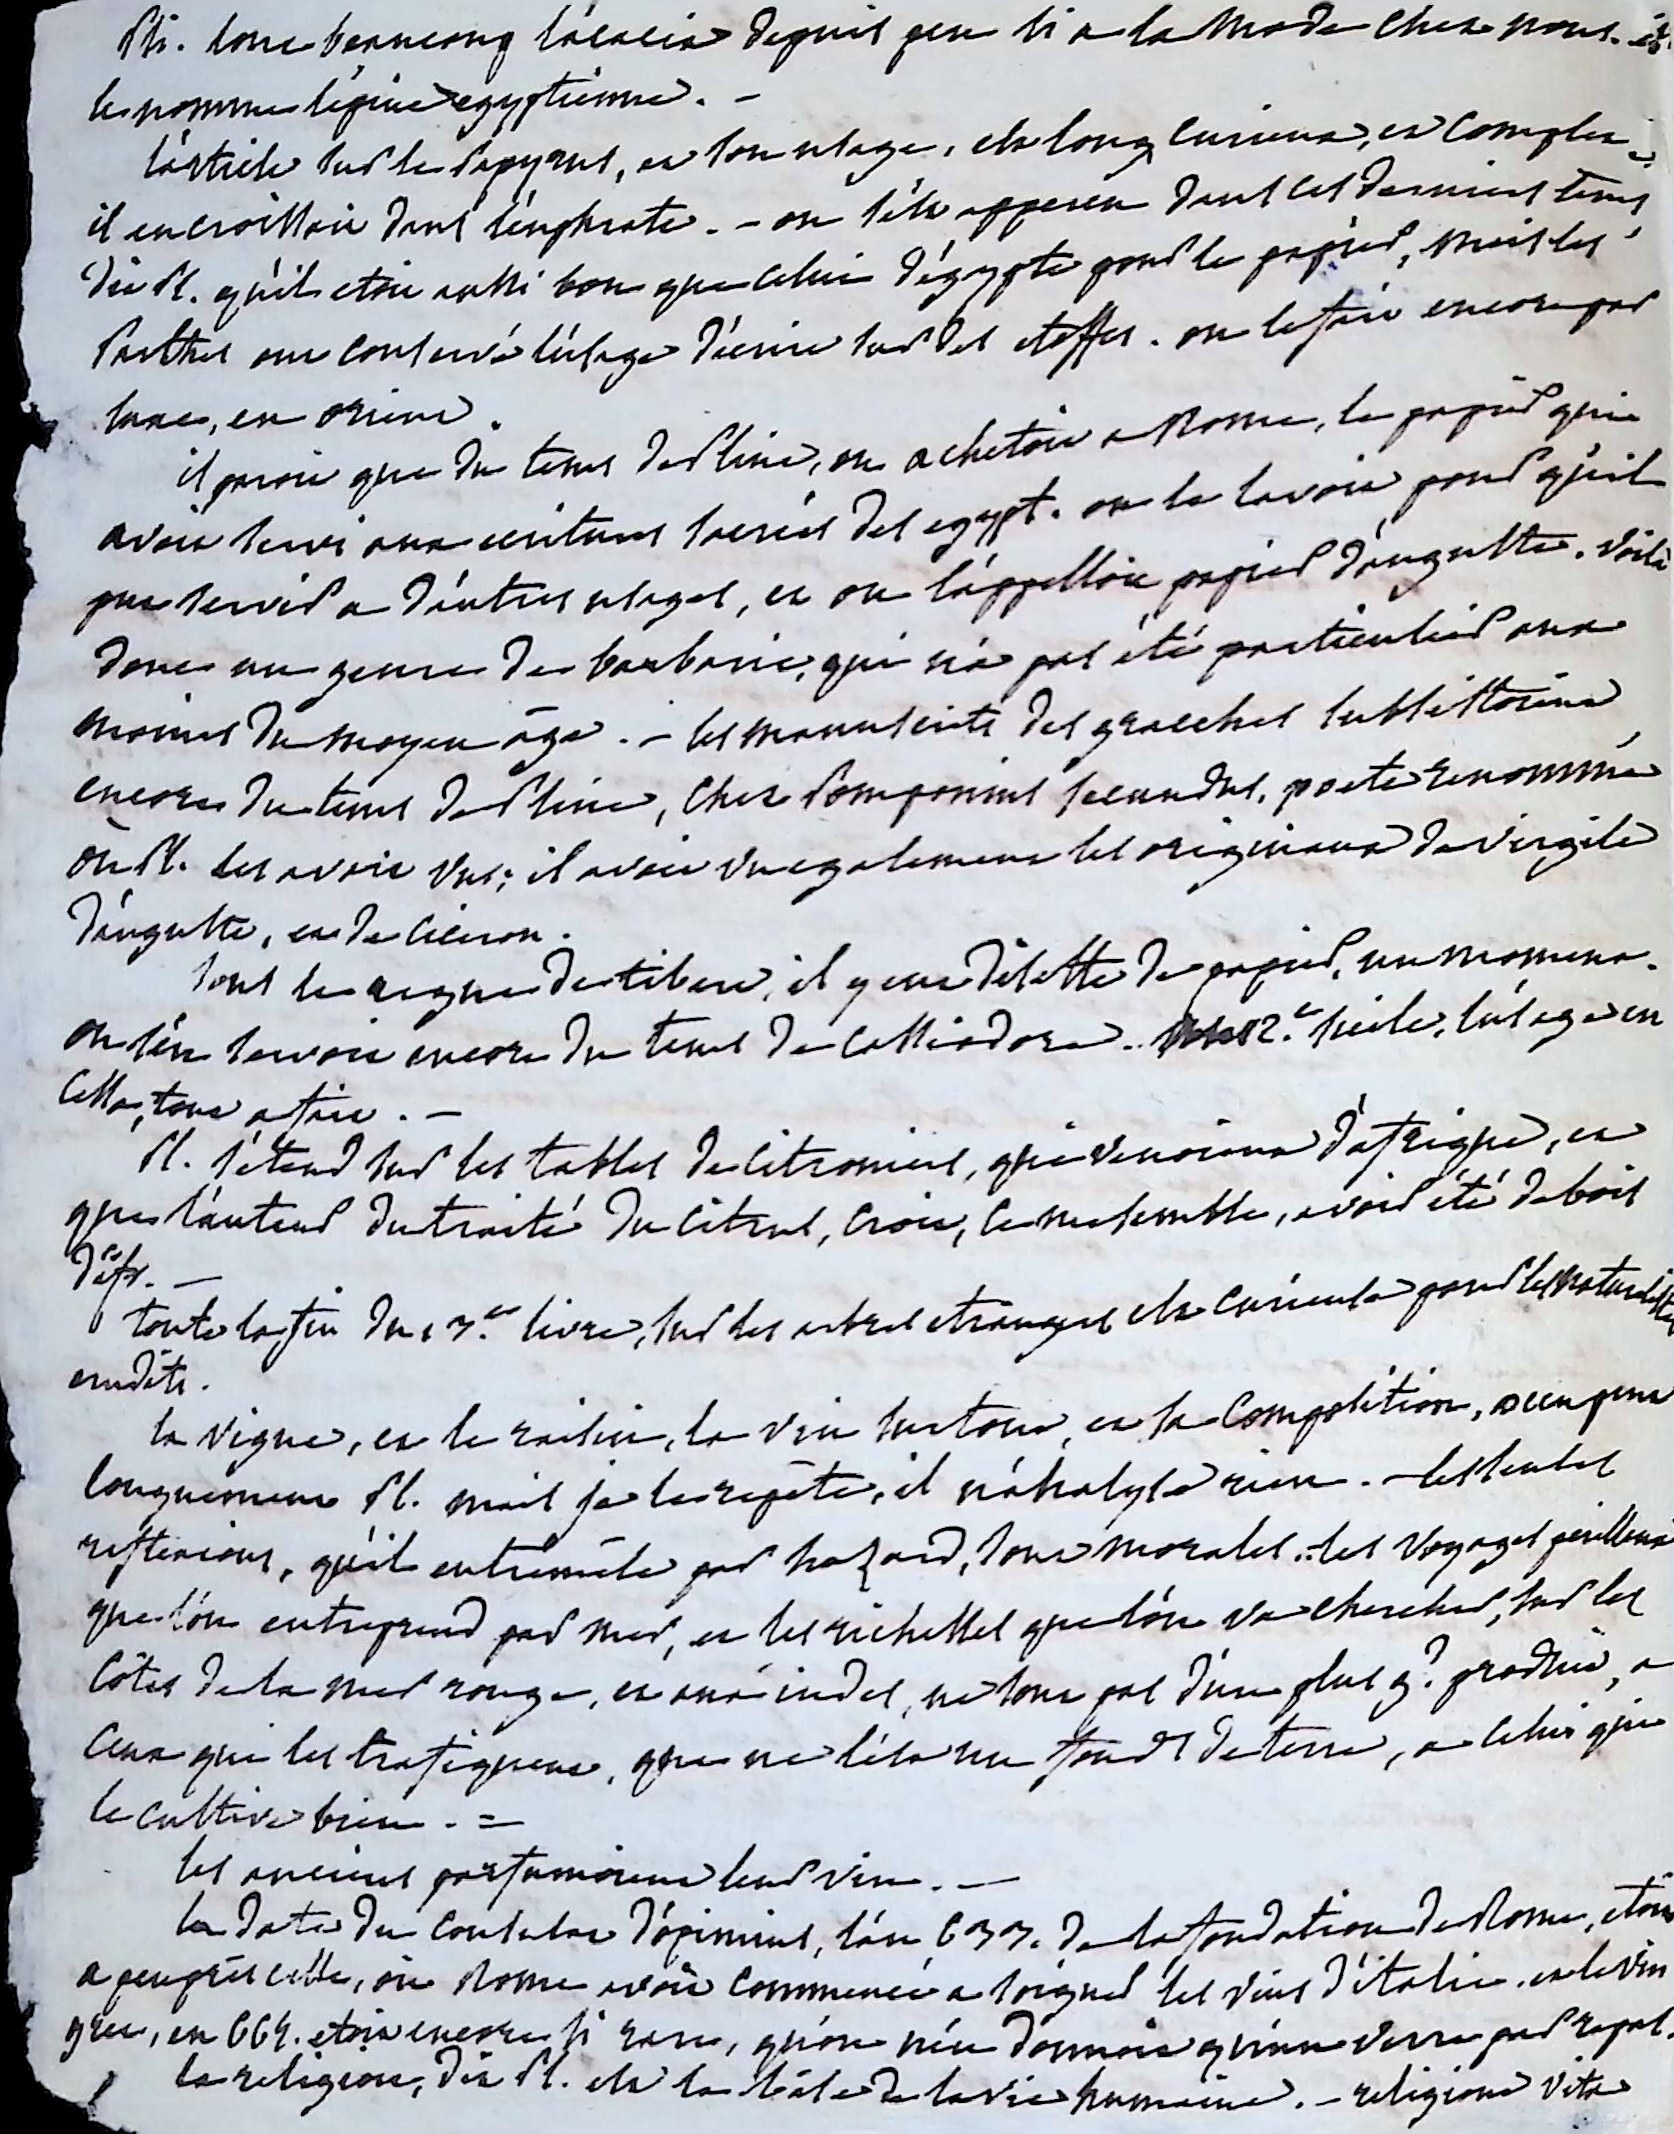 Pli. loue beaucoup l'acacia depuis peu si a la mode chez nous. il
le nomme l'épine egyptienne. -
l'article sur le papyrus, et son usage, est long curieux, et complet.
il en croissoit dans l'euphrate. - on s'est apperçu dans ces derniers tems
dit Pl. qu'il etoit aussi bon que celui d'égypte pour le papier, mais les
Parthes ont conservé l'usage d'écrire sur des etoffes. on le fait encore par
luxe, en orient.
il paroit que du tems de Pline, on achetoit a Rome, le papier qui
avoit servi aux ecritures sacrées des egypt. on le lavoit pour qu'il
put servir a d'autres usages, et on l'appelloit papier d'auguste. voilà
donc un genre de barbarie, qui n'a pas été particulier aux
moines du moyen âge. - les manuscrits des gracches subsistoient
encore du tems de Pline, chez Pomponius secundus, poete renommé
où Pl. les avoit vus; il avoit vu egalement les originaux de virgile
d'auguste, et de Ciceron.
sous le regne de tibere, il y eut disette de papier, un moment.
on s'en servoit encore du tems de Cassiodore. 12.e siecle, l'usage en
cessa, tout a fait. -
Pl. s'étend sur les tables de citronier, qui venoient d'afrique, et
que l'auteur du traité du citrus, croit, ce me semble, avoir été de bois
d'afr. -
toute la fin du 13.e livre, sur les arbres etrangers est curieuse pour les naturalistes
erudits.
la vigne, et le raisin, le vin surtout, et sa composition, occupent
longuement Pl. mais je le repéte, il n'analyse rien. - les seules
reflexions, qu'il entremêle par hazard, sont morales. - les voyages perilleux
que l'on entreprend par mer, et les richesses que l'on va chercher, sur les
côtes de la mer rouge, et aux indes, ne sont pas d'un plus gd. produit, a
ceux qui les trafiquent, que ne l'est un fonds de terre, a celui qui
le cultive bien. =
les anciens parfumoient leur vin. -
la date du consulat d'opimius, l'an 633. de la fondation de Rome, etoit
a peu près celle, où Rome avoit commencé a soigner les vins d'italie. et le vin
grec, en 664. etoit encore si rare, qu'on n'en donnoit qu'un verre par repas.
la religion, dit Pl. est la base de la vie humaine. - religione vita